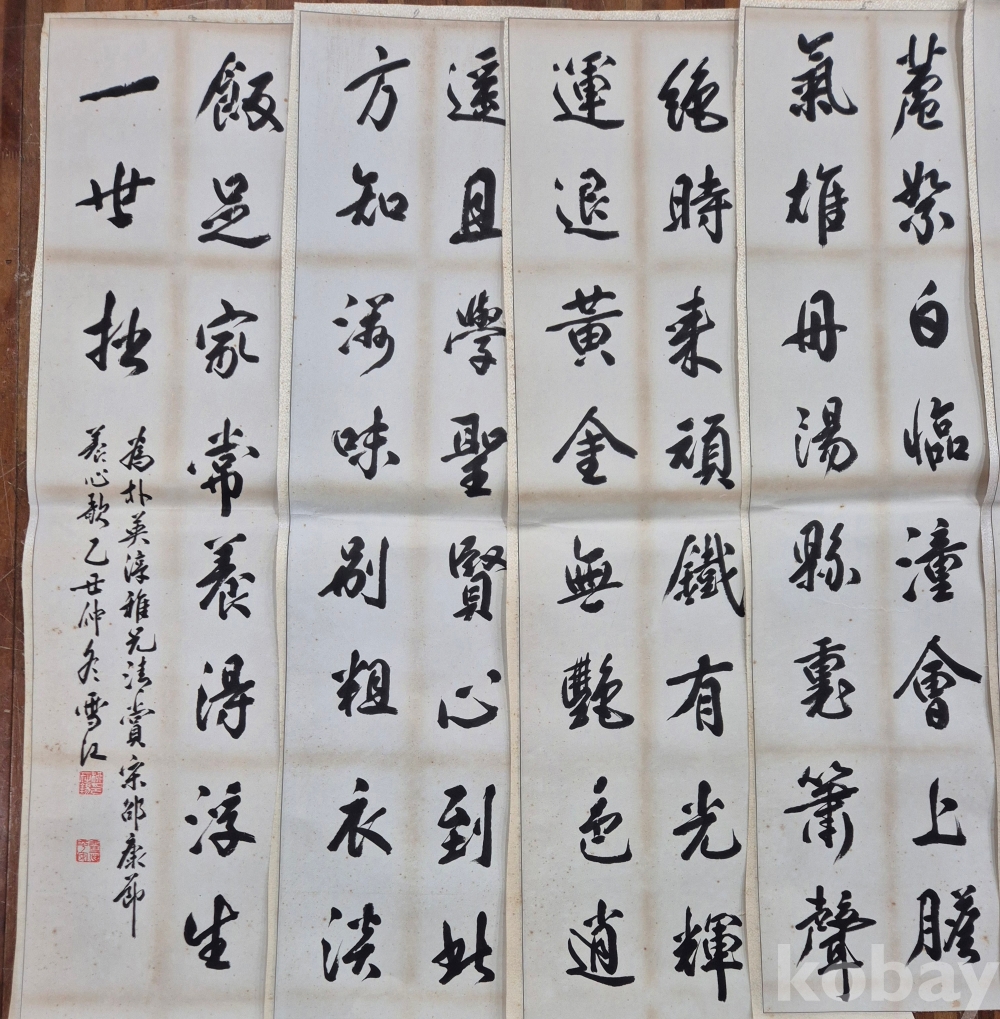 蘆絮白臨潼會上膽
氣雄丹湯縣裏簫聲
絕時来頑鐵有光輝
運退黃金無艷色逍
遙且學聖賢心到此
方知滋味別粗衣淡
飯足家常養得浮生
一世拙
為朴英淳雅兄清賞宋邵康節
養心歌乙丑仲冬雪江
kobay